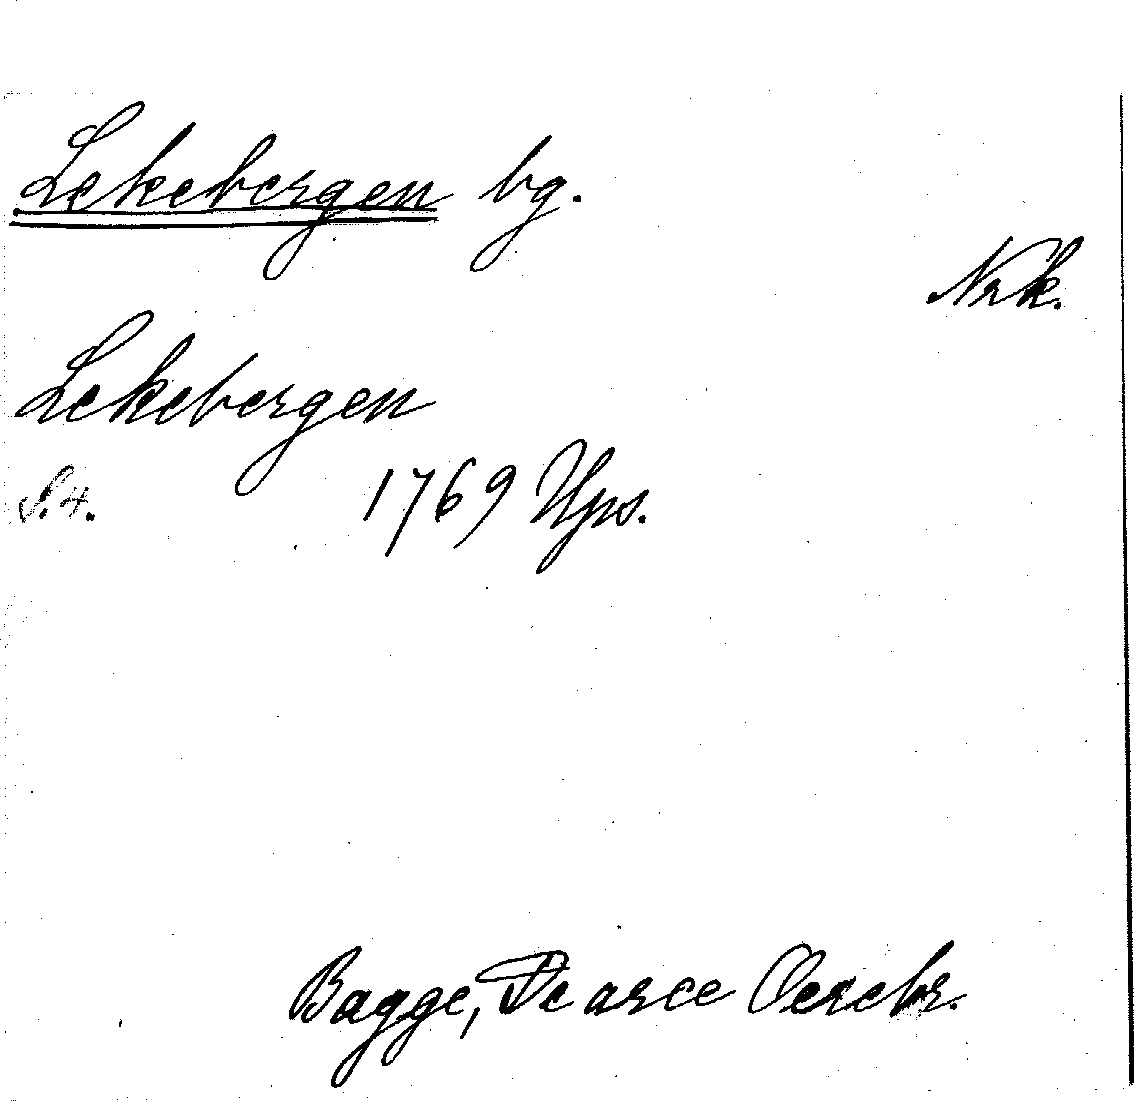 Lekebergen bg.
Nrk.
Lekebergen
S. 4. 1769 Ups.
Bagge, De arce Oerebr.